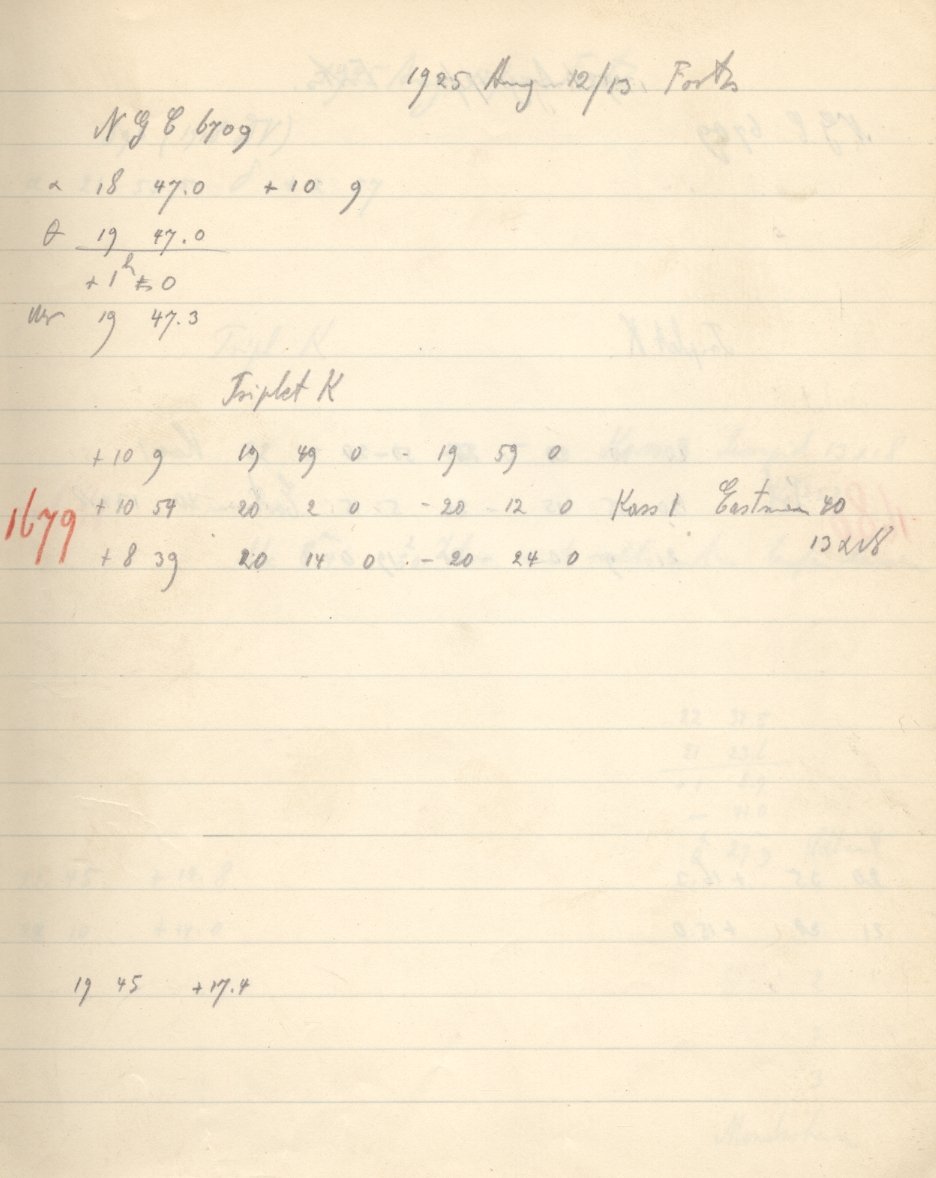 1925 Aug 12/13 Forts
N G C 6709
α 18 47.0 +10 9
θ 19 47.0
+1h 0
Uhr 19 47.3
Triplet K
+10 9 19 49 0 - 19 59 0
1679 +10 54 20 2 0 - 20 12 0 Kass 1 Eastman 40
+8 39 20 14 0 - 20 24 0 13x18
19 45 +17.4